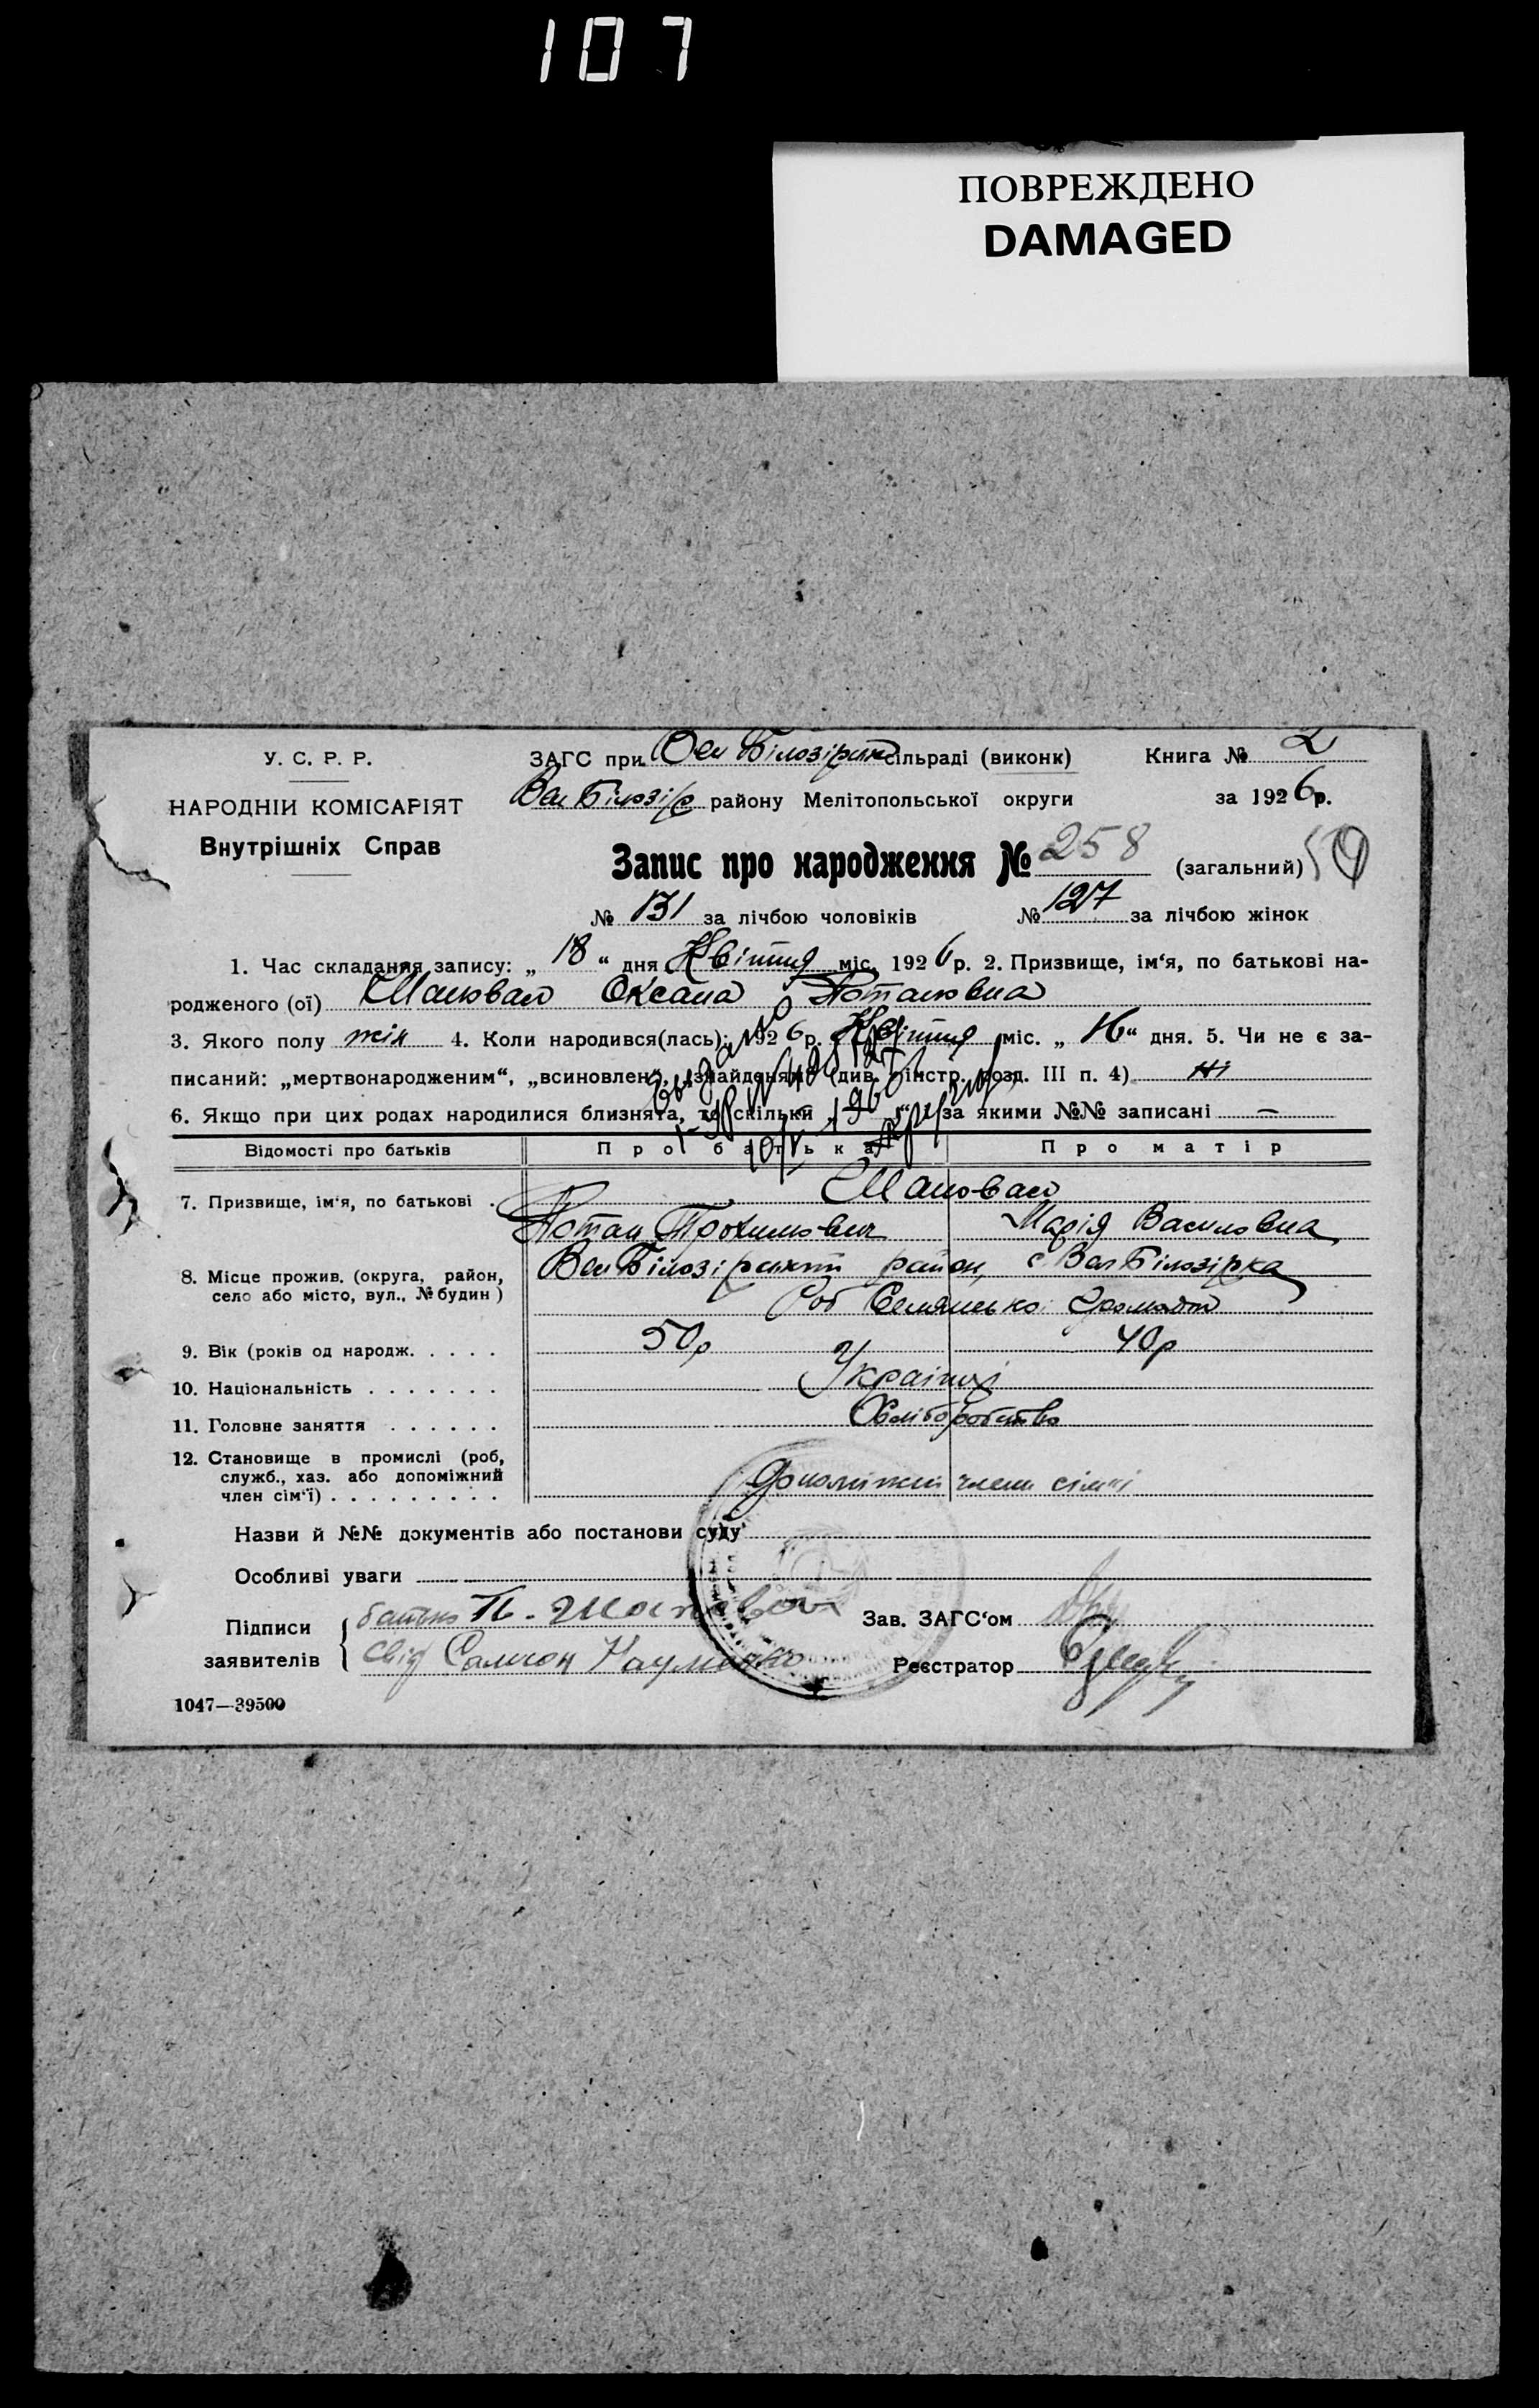 107
ПОВРЕЖДЕНО
DAMAGED
У. С. Р. Р.
ЗАГС при Вел Білозірск сільраді (виконк)
Книга № 2
НАРОДНІЙ КОМІСАРІЯТ
Вел Білозір району Мелітопольської округи
за 1926р.
Внутрішніх Справ
Запис про народження № 258 (загальний)
№ 131 за лічбою чоловіків № 127 за лічбою жінок
1. Час складання запису: „ 18 “ дня Квітня міс. 1926 р. 2. Призвище, ім‘я, по батькові на-
родженого (ої) Шаповал Оксана Потаповна
3. Якого полу жін 4. Коли народився(лась): 1926 р. Квітня міс. „ 16 “ дня. 5. Чи не є за-
писаний: „мертвонародженим“, „всиновлен“, „знайденям“ (див. інстр. розд. III п. 4) ні
6. Якщо при цих родах народилися близнята, то скільки — за якими №№ записані —
Выдано
Відомості про батьків
Про батька
Про матір
7. Призвище, ім‘я, по батькові . Шаповал
Потап Трохимович Марія Василовна
8. Місце прожив. (округа, район,
село або місто, вул., № будин)
Вел Білозірський район, с Вел Білозірка
9. Вік (років од народж. . . . . 50р 40р
10. Національність . . . . . . . Українці
11. Головне заняття . . . . . . Хліборобство
12. Становище в промислі (роб,
служб., хаз. або допоміжний
член сім‘ї) . . . . . . . . .
члени сім'ї
Назви й №№ документів або постанови суду
Особливі уваги
Підписи
заявителів
батько П. Шаповал
свід Самсон Науменко
Зав. ЗАГС‘ом
Реєстратор
1047—39500